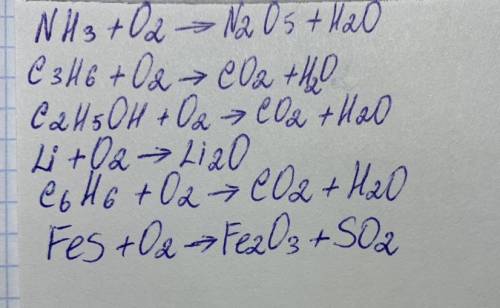 NH3 + O2 → N2O5 + H2O
C3H6 + O2 → CO2 + H2O
C2H5OH + O2 → CO2 + H2O
Li + O2 → Li2O
C6H6 + O2 → CO2 + H2O
FeS + O2 → Fe2O3 + SO2